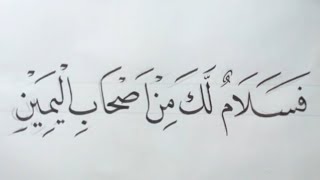 فَسَلَامٌ لَّكَ مِنْ اَصْحَابِ الْيَمِيْنِ